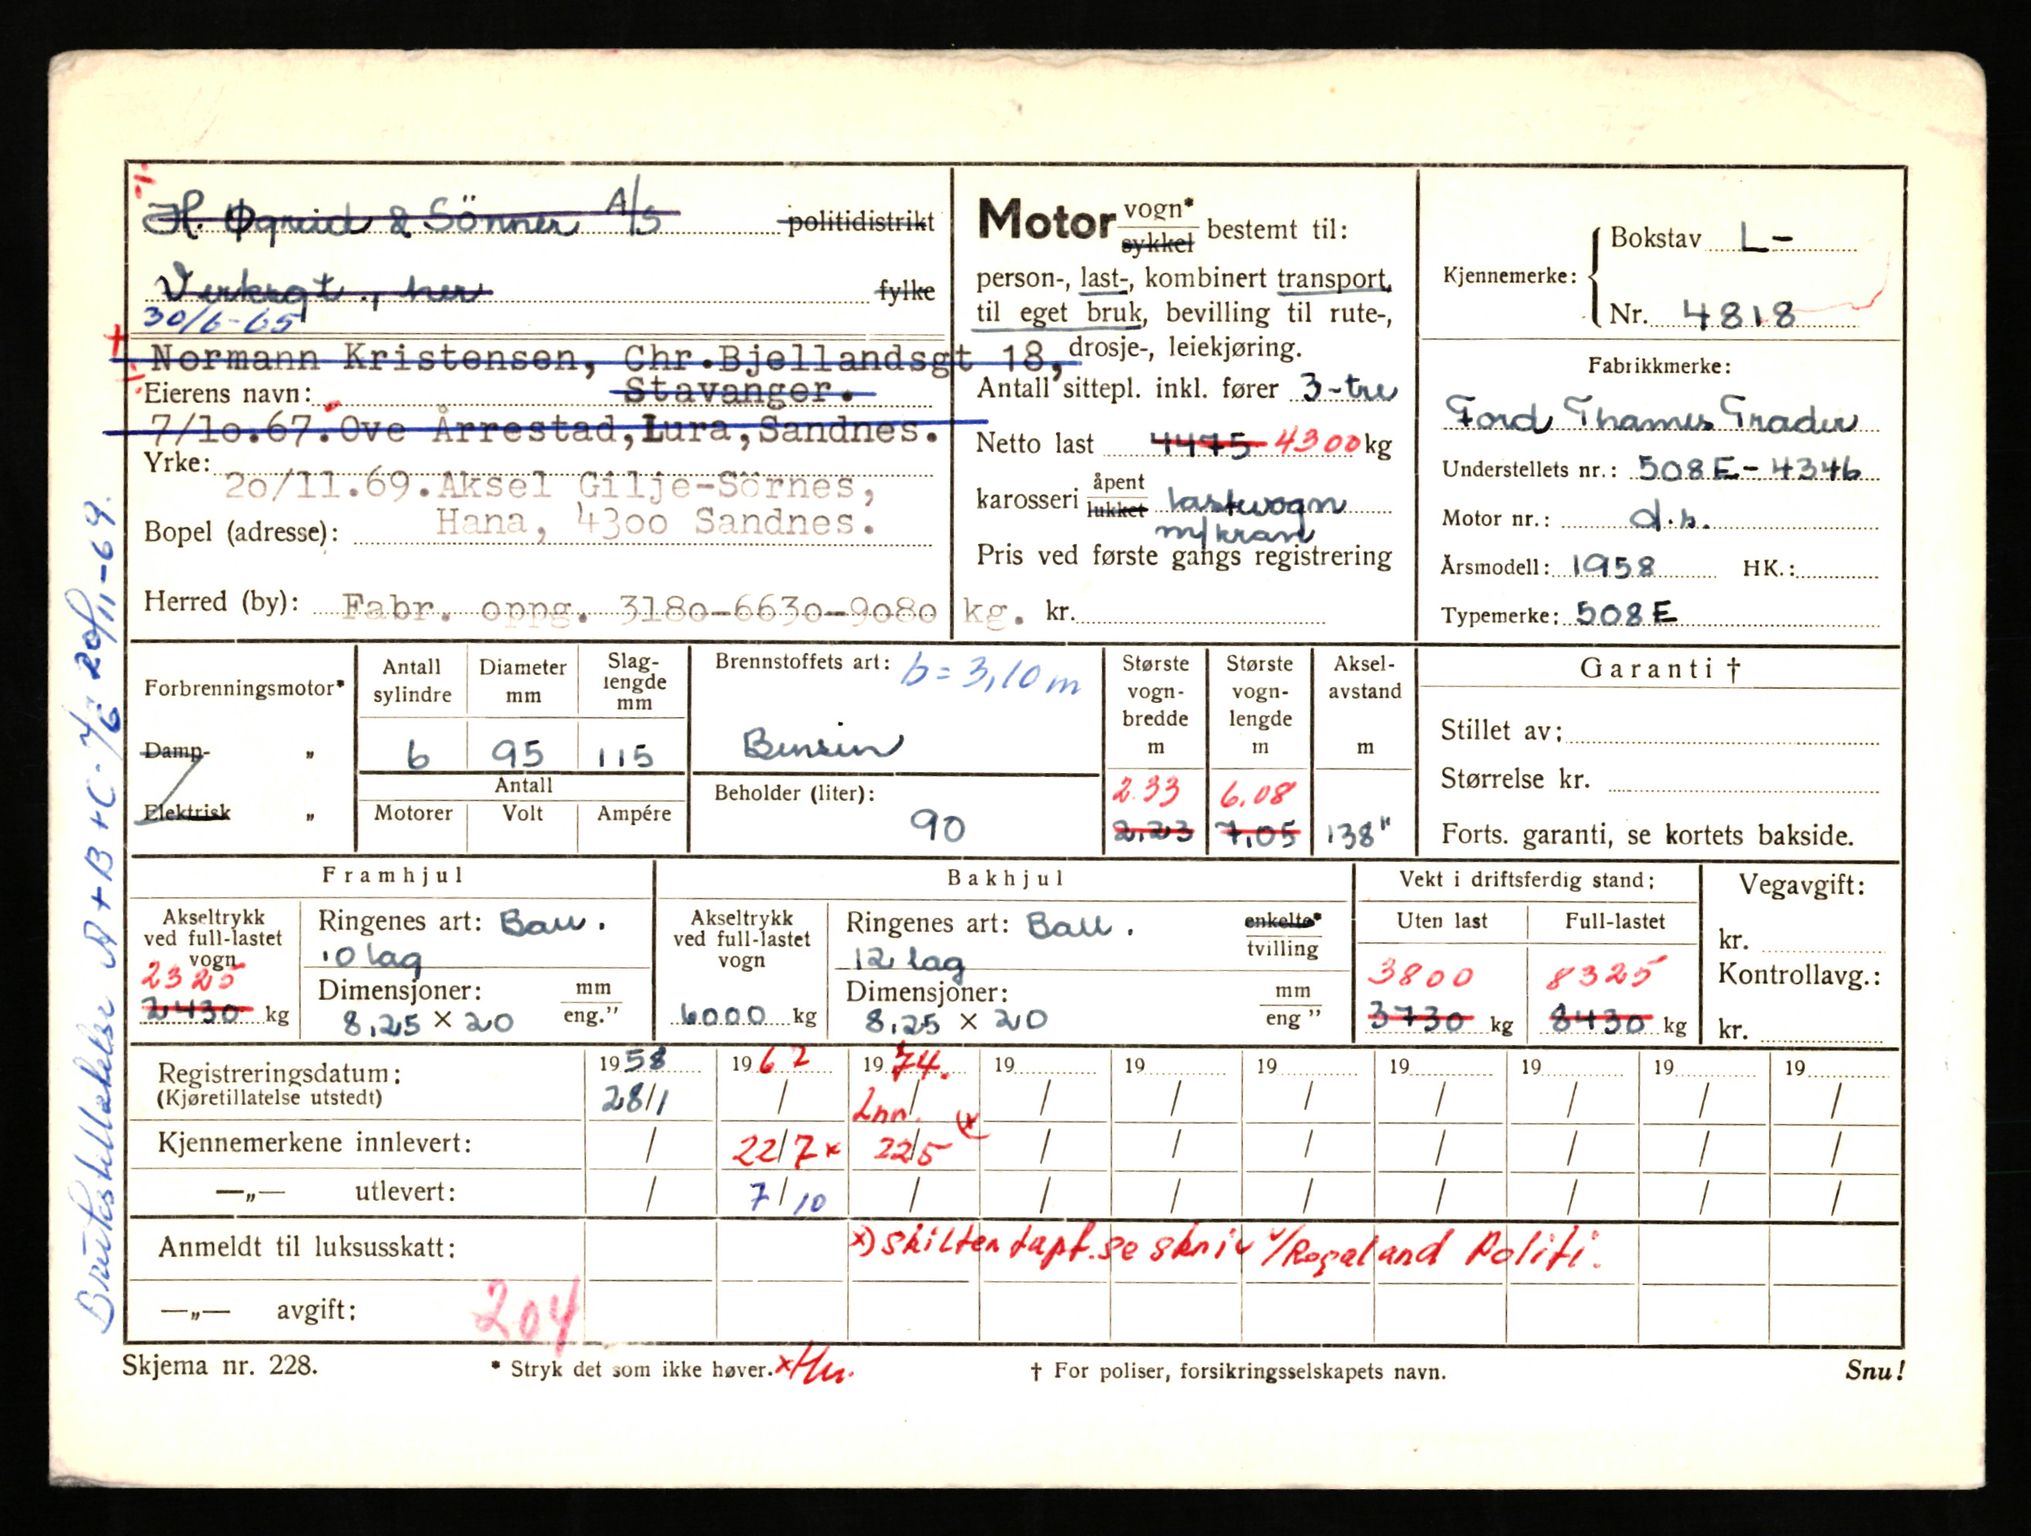 H. Øgreid & Sönner A/S politidistrikt
Verksgt., her fylke
30/6-65
Normann Kristensen, Chr.Bjellandsgt 18,
Eierens navn: Stavanger.
7/10.67.Ove Årrestad,Lura,Sandnes.
Yrke:
20/11.69.Aksel Gilje-Sörnes,
Bopel (adresse): Hana, 4300 Sandnes.
Herred (by): Fabr. oppg. 3180-6630-9080 kg.
Motor vogn* sykkel bestemt til:
person-, last-, kombinert transport,
til eget bruk, bevilling til rute-,
drosje-, leiekjøring.
Antall sittepl. inkl. fører 3-tre
Netto last 4475 4300 kg
karosseri åpent lukket lastevogn
m/kran
Pris ved første gangs registrering
kr.
Kjennemerke: Bokstav L-
Nr. 4818
Fabrikkmerke:
Ford Thames Trader
Understellets nr.: 508E-4346
Motor nr.: d.s.
Årsmodell: 1958 HK.:
Typemerke: 508E
Forbrenningsmotor*
Damp- "
Elektrisk "
Antall sylindre Diameter mm Slag-lengde mm
6 95 115
Antall
Motorer Volt Ampére
Brennstoffets art: b = 3,10 m
Bensin
Beholder (liter):
90
Største vogn-bredde m
2.33
2,23
Største vogn-lengde m
6.08
7,05
Aksel-avstand m
138"
Garanti †
Stillet av:
Størrelse kr.
Forts. garanti, se kortets bakside.
Framhjul
Akseltrykk ved full-lastet vogn
2325
2430 kg
Ringenes art: Ball.
10 lag
Dimensjoner: mm eng."
8,25 x 20
Bakhjul
Akseltrykk ved full-lastet vogn
6000 kg
Ringenes art: Ball. enkelte* tvilling
12 lag
Dimensjoner: mm eng "
8,25 x 20
Vekt i driftsferdig stand:
Uten last Full-lastet
3800 8325
3730 kg 8430 kg
Vegavgift:
kr.
Kontrollavg.:
kr.
Registreringsdatum: 1958 1962 1974. 19 19 19 19 19 19 19
(Kjøretillatelse utstedt) 28/1 / Inn. / / / / / / / /
Kjennemerkene innlevert: / 22/7 x 22/5 (x / / / / / / /
—„— utlevert: / 7/10 / / / / / / / /
Anmeldt til luksusskatt: x) skilten tapt. se skriv v/Rogaland Politi.
—„— avgift: 204
Skjema nr. 228. * Stryk det som ikke høver. † For poliser, forsikringsselskapets navn. Snu!
Brukstillatelse A+B+C- 7/6 20/11-69.